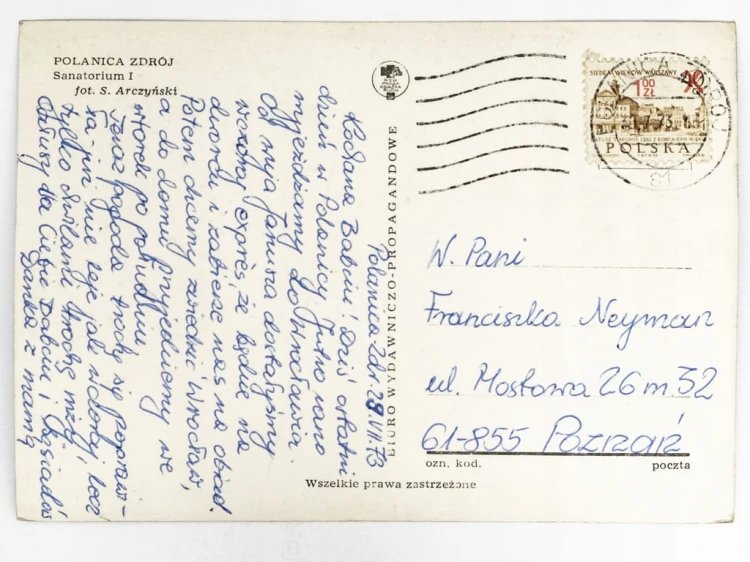 POLANICA ZDRÓJ
Sanatorium I
fot. S. Arczyński
Polanica Zdr. 29.VII.73
Kochana Babciu! Dziś ostatni
dzień w Polanicy. Jutro rano
wyjeżdżamy do Wrocławia.
Od wuja Janusza dostałyśmy
wczoraj expres, że będzie na
dworcu i zabierze nas na obiad.
Potem chcemy zwiedzić Wrocław,
a do domu przyjedziemy we
wtorek po południu.
Teraz pogoda trochę się popraw-
ła - już nie leje jak wczoraj, lecz
tylko chwilami trochę mży.
Całusy dla Ciebie Babciu i sąsiadów
Danka z mamą
BIURO WYDAWNICZO-PROPAGANDOWE
SIEDEM WIEKÓW WARSZAWY
1,00
ZŁ
POLSKA
W. Pani
Franciszka Neyman
ul. Mostowa 26 m. 32
61-855 Poznań
ozn. kod.
poczta
Wszelkie prawa zastrzeżone